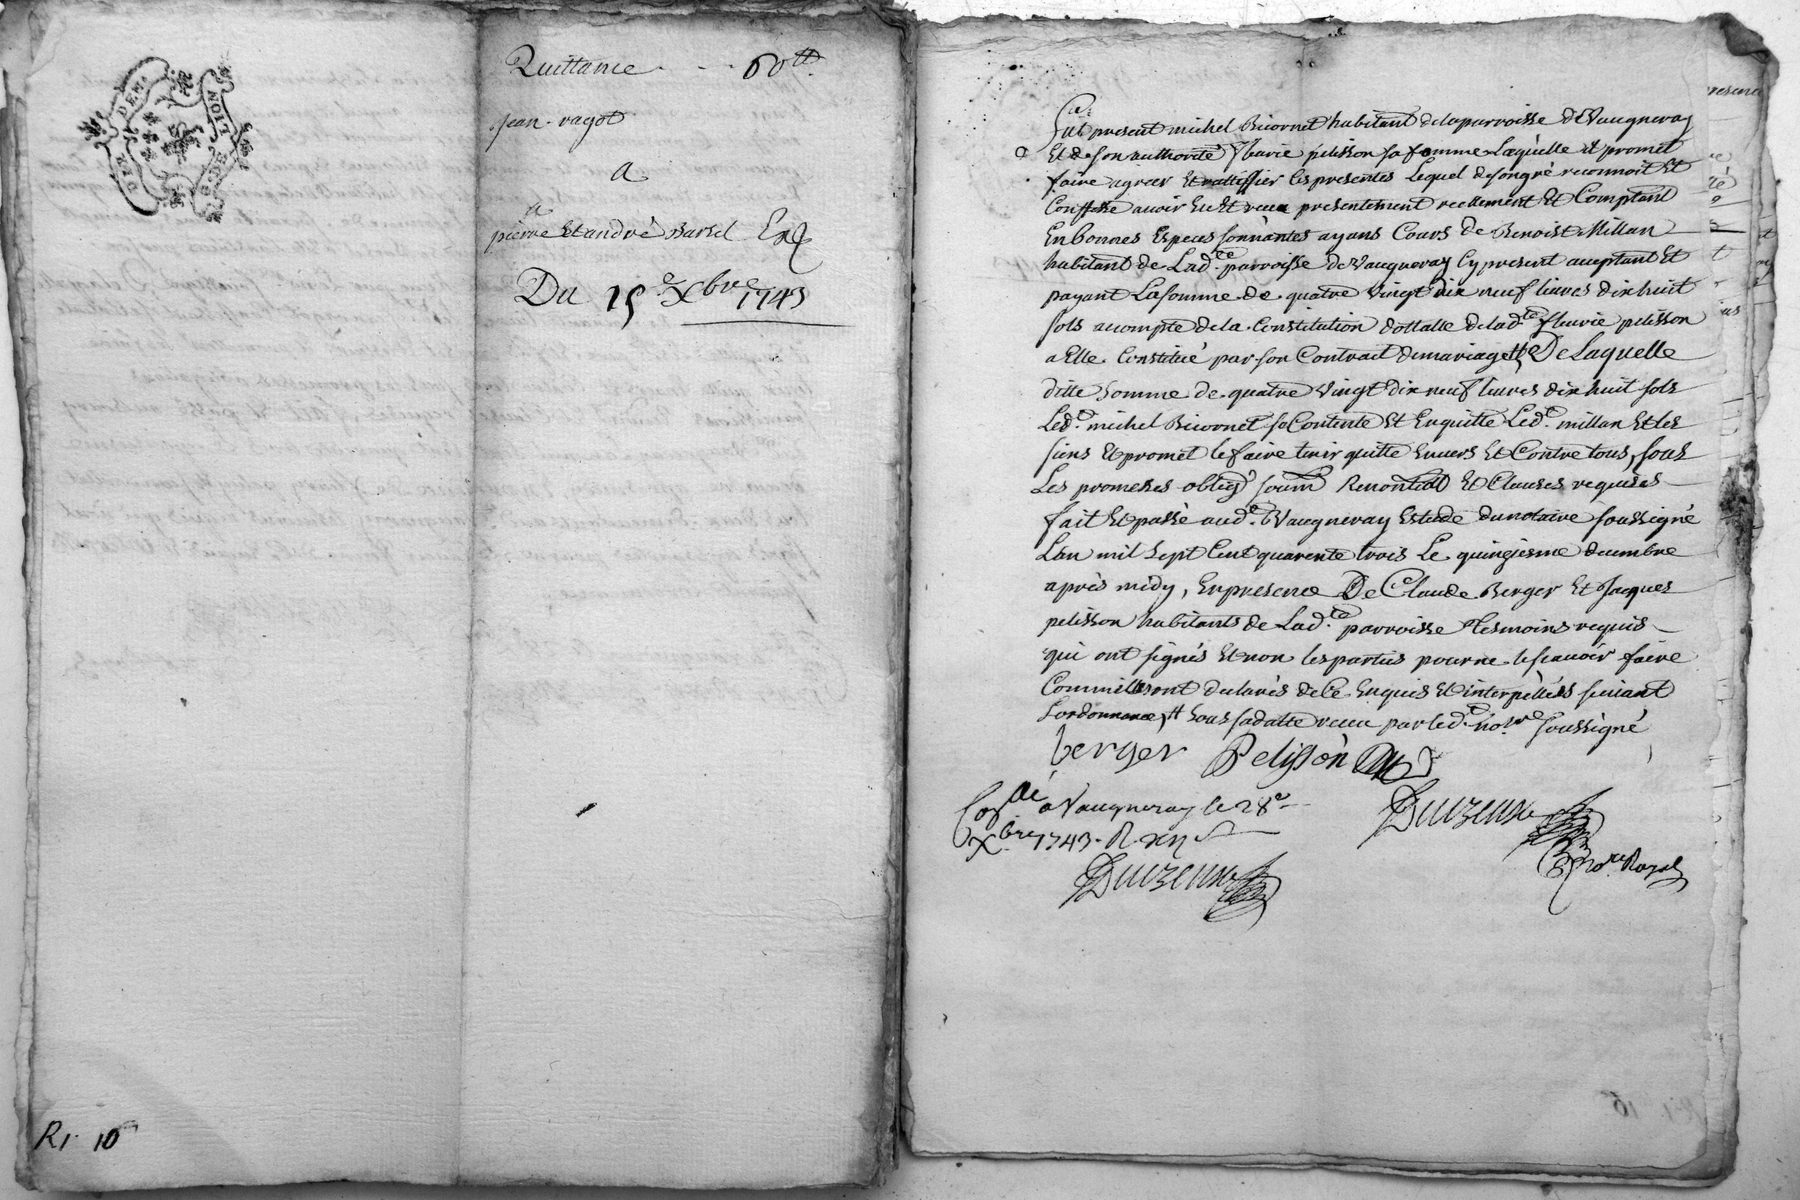 DER DEMI
G. DE LION
Quittance . . . 60tt
jean ragot
a
a
pierre Et andré Barrel Exp
Du 15e Xbre 1743
R1 . 10
Fut present michel Bicornet habitant de la parroisse de Vaugneray
Et de son authorité fleurie pelisson sa femme Laquelle il promet
faire agreer Et rattiffier les presentes Lequel de son gré reconnoit Et
Confesse avoir Eu Et receu presentement reellement Et Comptant
En bonnes Especes sonnantes ayans Cours de Benoist Millan
habitant de Ladte parroisse de Vaugneray Cy present aceptant Et
payant La somme de quatre Vingt dix neuf livres dix huit
sols acompte de la Constitution dottalle de ladte fleurie pelisson
a Elle Constitué par son Contrait de mariage tt De Laquelle
ditte Somme de quatre Vingt dix neuf livres dix huit sols
Ledt michel Bicornet se Contente Et En quitte Ledt millan Et les
siens Et promet le faire tenir quitte Envers Et Contre tous, sous
Les promesses obligé soum Renontiat Et Clauses requises
fait Et passé audt Vaugneray Estude du notaire soussigné
Lan mil Sept Cent quarente trois Le quinziesme decembre
après midy, En presence De Claude Berger Et Jacques
pelisson habitants de Ladte parroisse tesmoins requis
qui ont signés Et non les parties pour ne le scavoir faire
Comm'ils ont declarés de Ce Enquis Et interpellés suivant
Lordonnance, tt Sous sa datte receu par ledt nore soussigné
berger Pelisson
Collé a Vaugneray le 28e
Xbre 1743. R. xii s
Duvzeux
Duvzeux
nore Royal